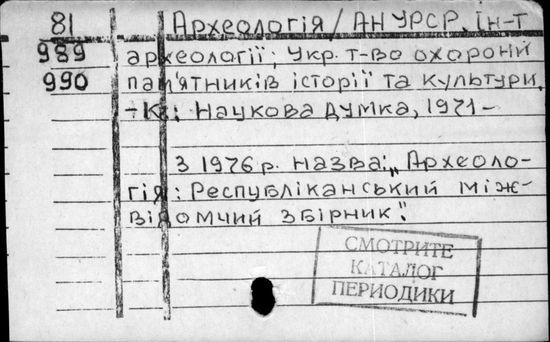 81 Археологія / АН УРСР. Ін-т
989 археології; Укр. т-во охорони
990 пам'ятників історії та культури.
- К.: Наукова думка, 1971 -
З 1976 р. назва: „Археоло-
гія: Республіканський між-
відомчий збірник".
СМОТРИТЕ
КАТАЛОГ
ПЕРИОДИКИ